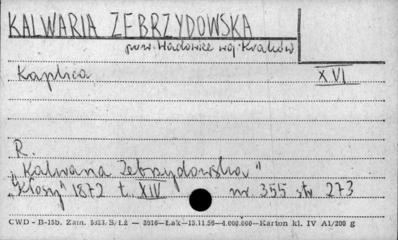 KALWARIA ZEBRZYDOWSKA
pow. Wadowice woj. Kraków
Kaplica XVI
R.
"Kalwaria Zebrzydowska"
"Kłosy" 1872 t. XIV nr 355 str 273
CWD - B-15b. Zam. 5523.S/1.2 — 3916—Łak—13.11.56—4.000.000—Karton kl. IV A1/200 g